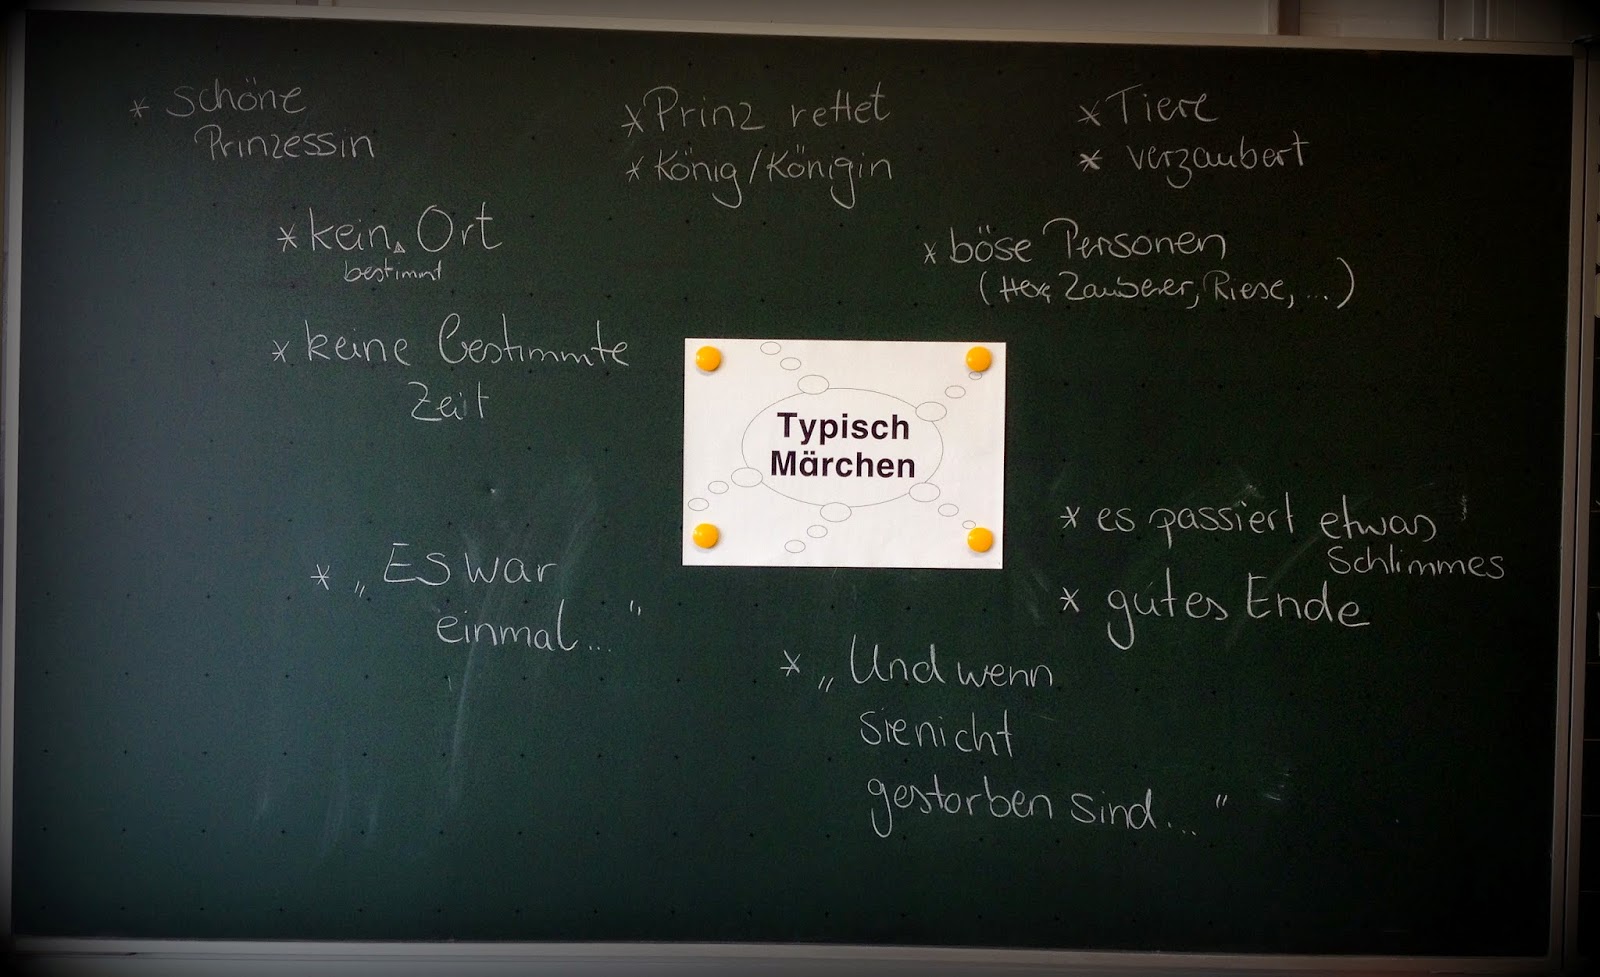 * schöne
Prinzessin
* Prinz rettet
* König/Königin
* Tiere
* verzaubert
* kein Ort
bestimmt
* böse Personen
(Hexe, Zauberer, Riese, ...)
* keine bestimmte
Zeit
Typisch
Märchen
* „Es war
einmal..."
* es passiert etwas
Schlimmes
* gutes Ende
* „Und wenn
sie nicht
gestorben sind..."